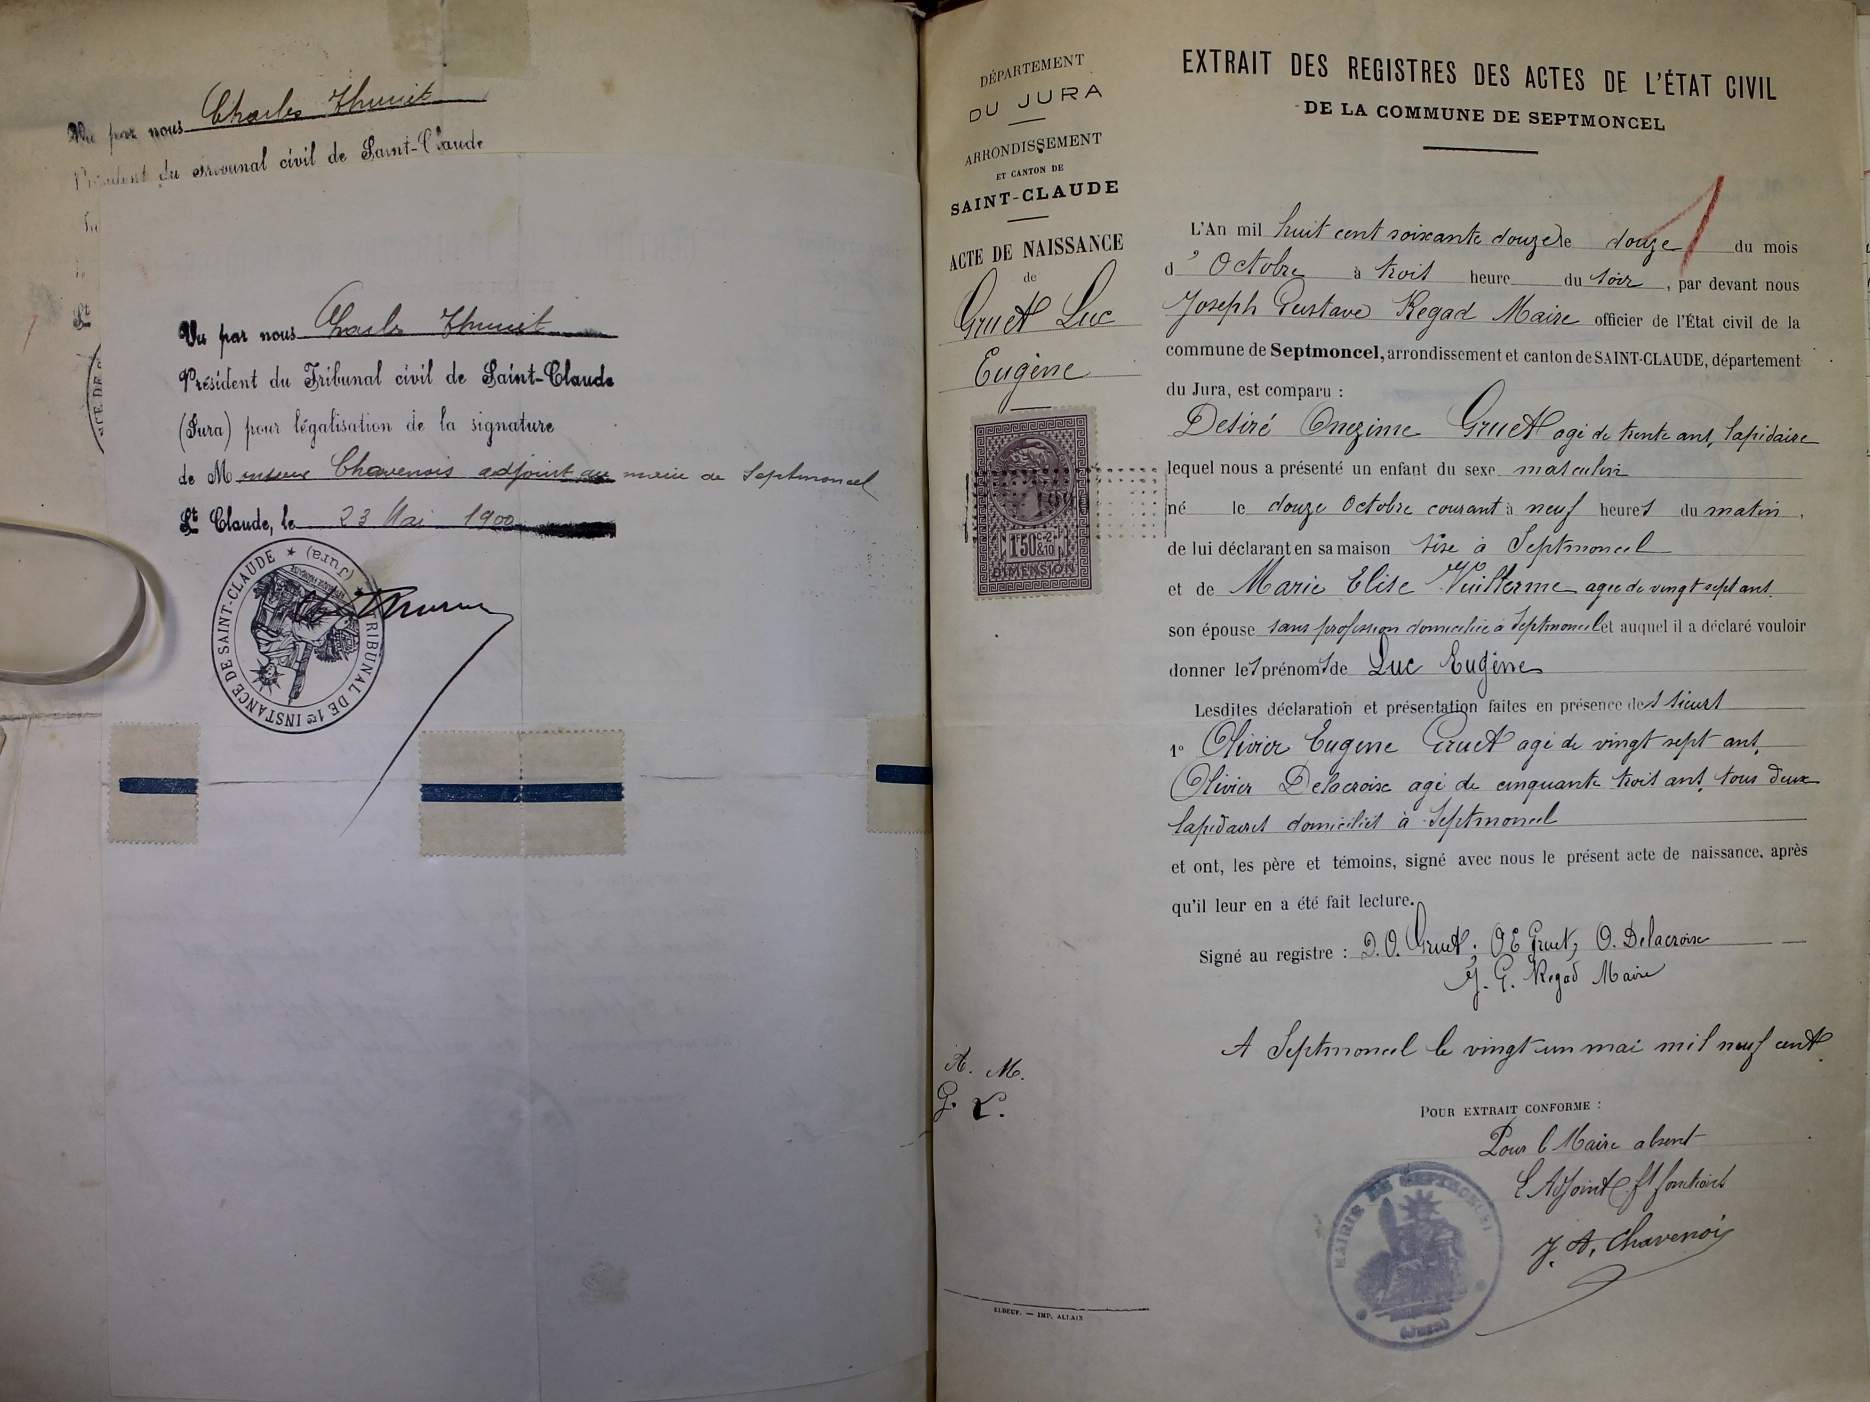 Vu par nous Charles
Président du Tribunal civil de Saint-Claude
St
Vu par nous Charles
Président du Tribunal civil de Saint-Claude
(Jura) pour légalisation de la signature
de Monsieur Chavenois adjoint au maire de Septmoncel
St Claude, le 23 Mai 1900
TRIBUNAL DE 1re INSTANCE DE SAINT-CLAUDE ★ (Jura) ★
DÉPARTEMENT
DU JURA
ARRONDISSEMENT
ET CANTON DE
SAINT-CLAUDE
ACTE DE NAISSANCE
de
Gruet Luc
Eugène
1F50c
2/10
DIMENSION
A. M.
G. L.
ELBEUF. — IMP. ALLAIN
EXTRAIT DES REGISTRES DES ACTES DE L'ÉTAT CIVIL
DE LA COMMUNE DE SEPTMONCEL
1
L'An mil huit cent soixante douze le douze du mois
d'Octobre à trois heure du soir, par devant nous
Joseph Gustave Regad Maire officier de l'État civil de la
commune de Septmoncel, arrondissement et canton de SAINT-CLAUDE, département
du Jura, est comparu :
Desiré Onezime Gruet agé de trente ans, lapidaire
lequel nous a présenté un enfant du sexe masculin
né le douze Octobre courant à neuf heures du matin,
de lui déclarant en sa maison sise à Septmoncel
et de Marie Elise Vuillerme agée de vingt sept ans
son épouse sans profession domiciliée à Septmoncel et auquel il a déclaré vouloir
donner les prénoms de Luc Eugène
Lesdites déclaration et présentation faites en présence des sieurs
1° Olivier Eugene Gruet agé de vingt sept ans,
Olivier Delacroix agé de cinquante trois ans, tous deux
lapidaires domiciliés à Septmoncel
et ont, les père et témoins, signé avec nous le présent acte de naissance, après
qu'il leur en a été fait lecture.
Signé au registre : D. O. Gruet; O E Gruet, O. Delacroix
J. G. Regad Maire
A Septmoncel le vingt un mai mil neuf cent.
POUR EXTRAIT CONFORME :
Pour le Maire absent
L'Adjoint ft fonctions
J. A. Chavenois
MAIRIE DE SEPTMONCEL
(Jura)